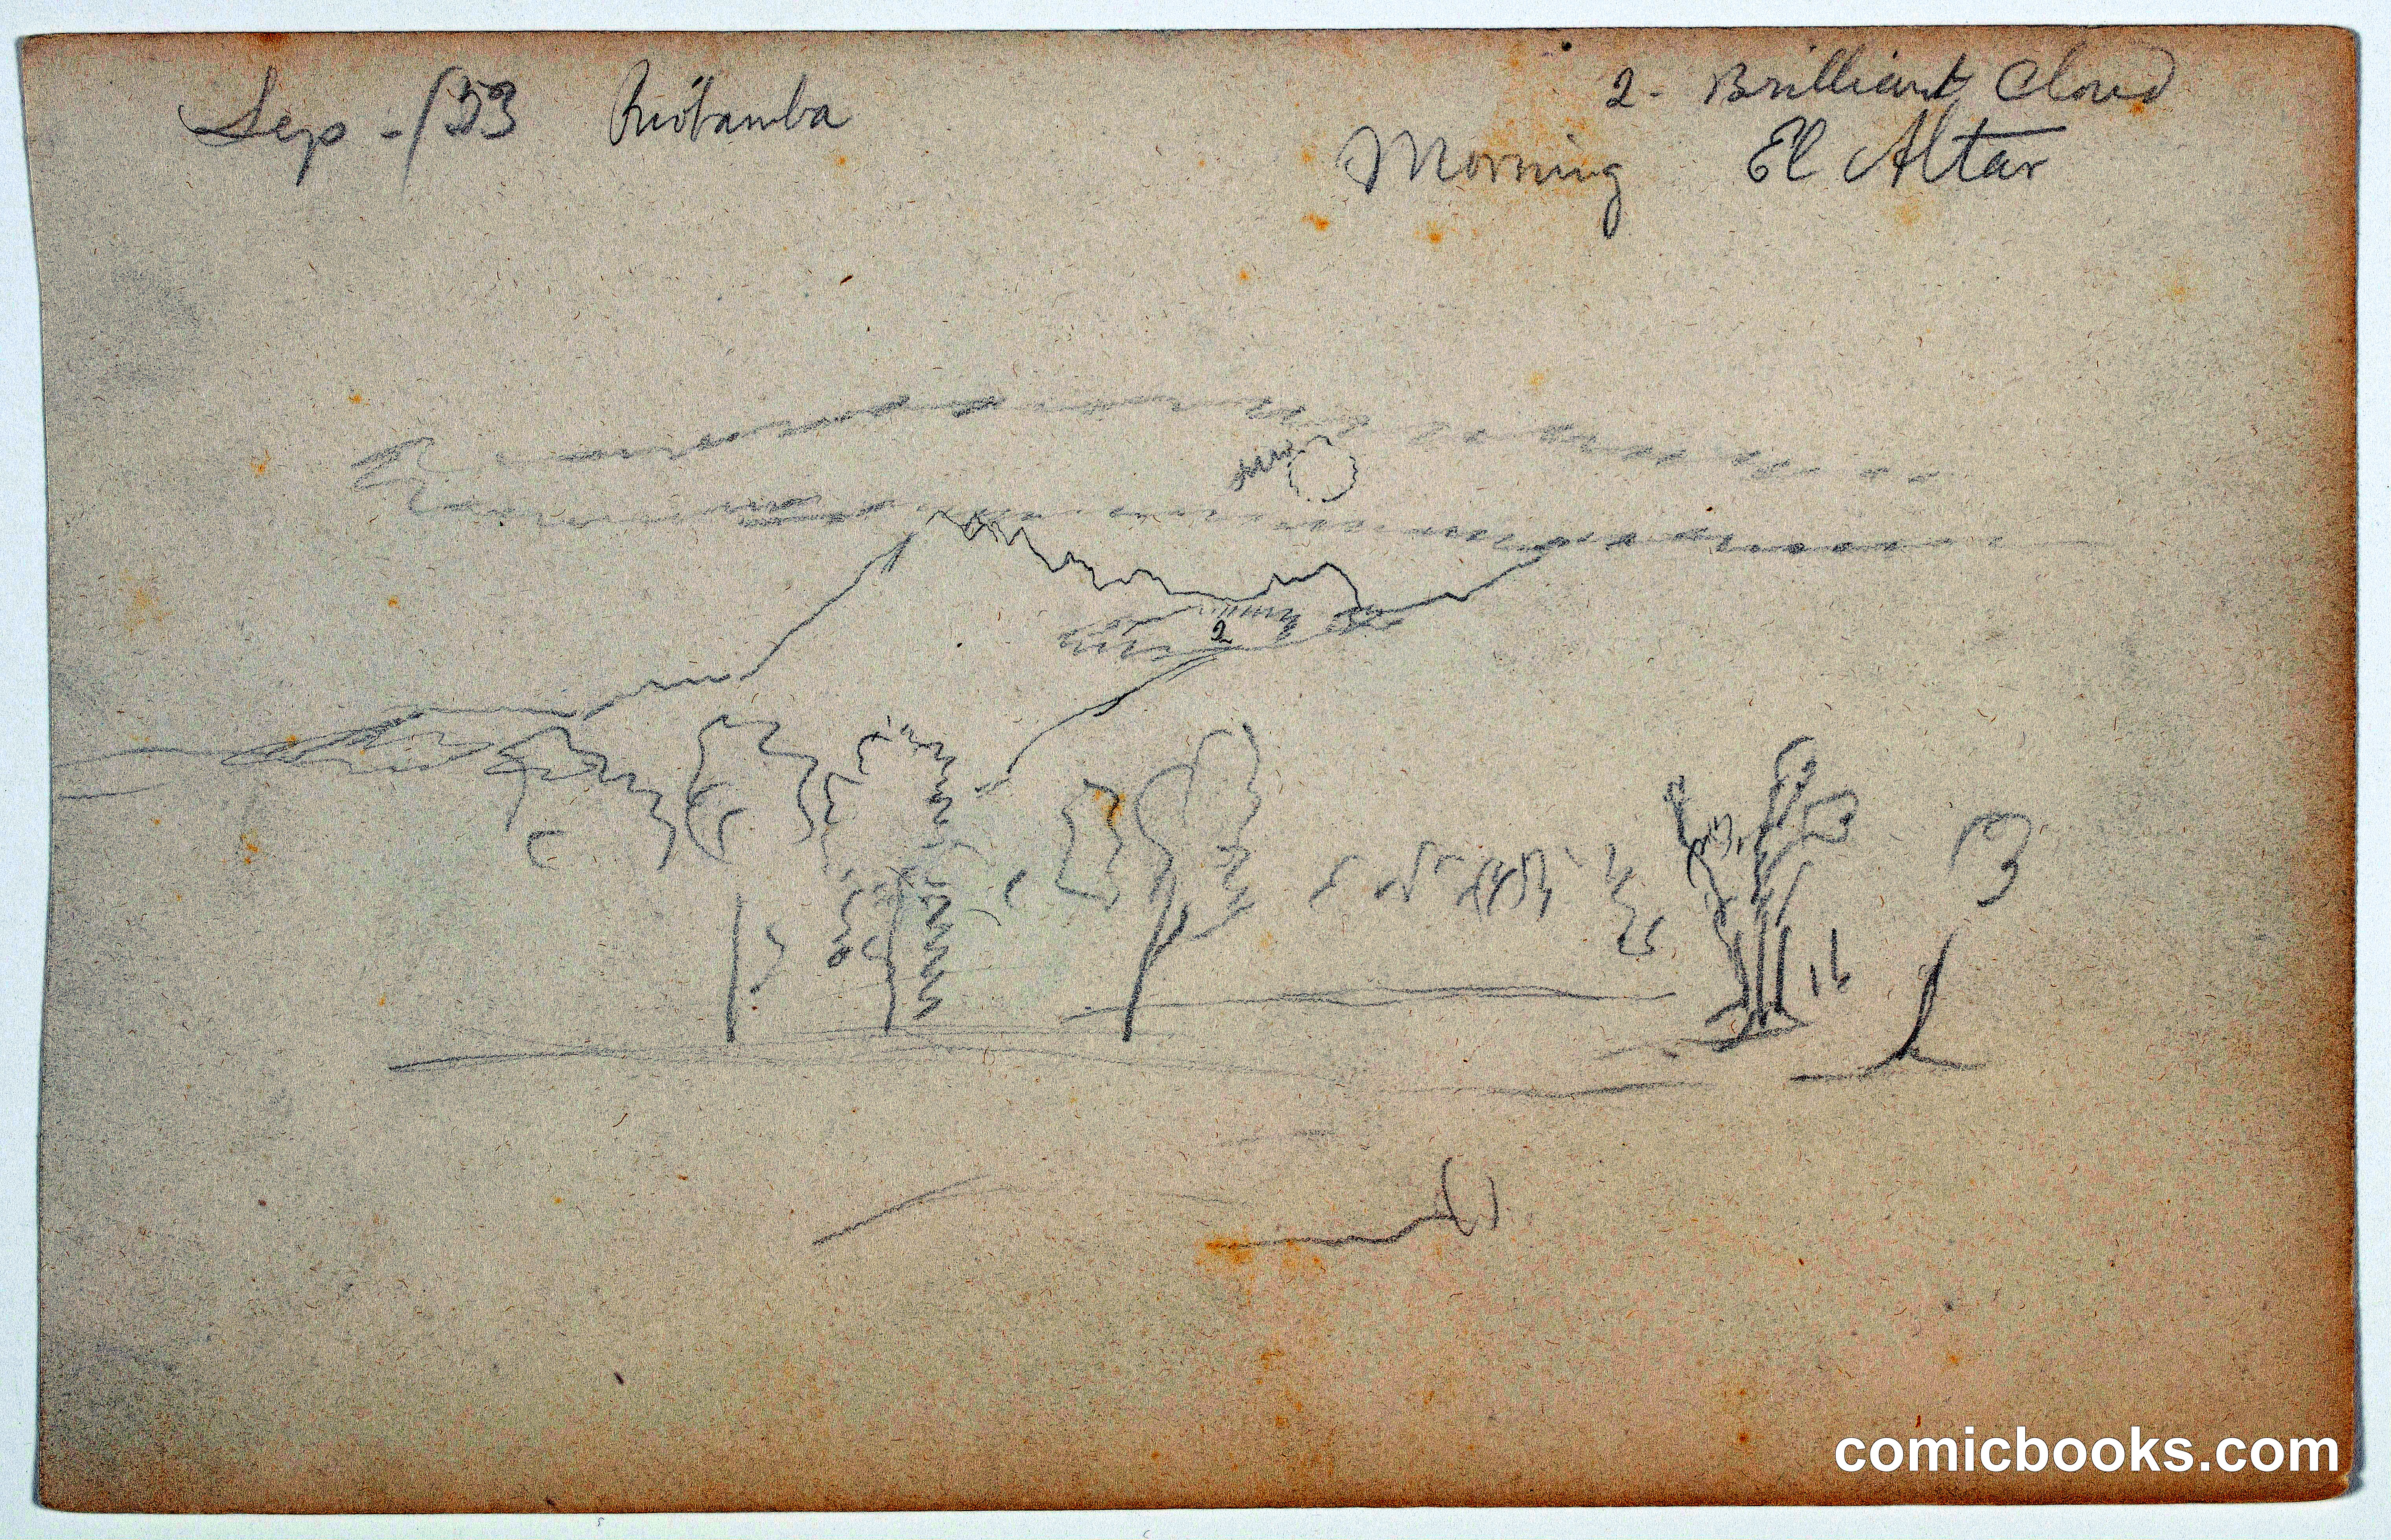 Sep - /53 Riobamba
2- Brilliant Cloud
Morning El Altar
sun
2
comicbooks.com